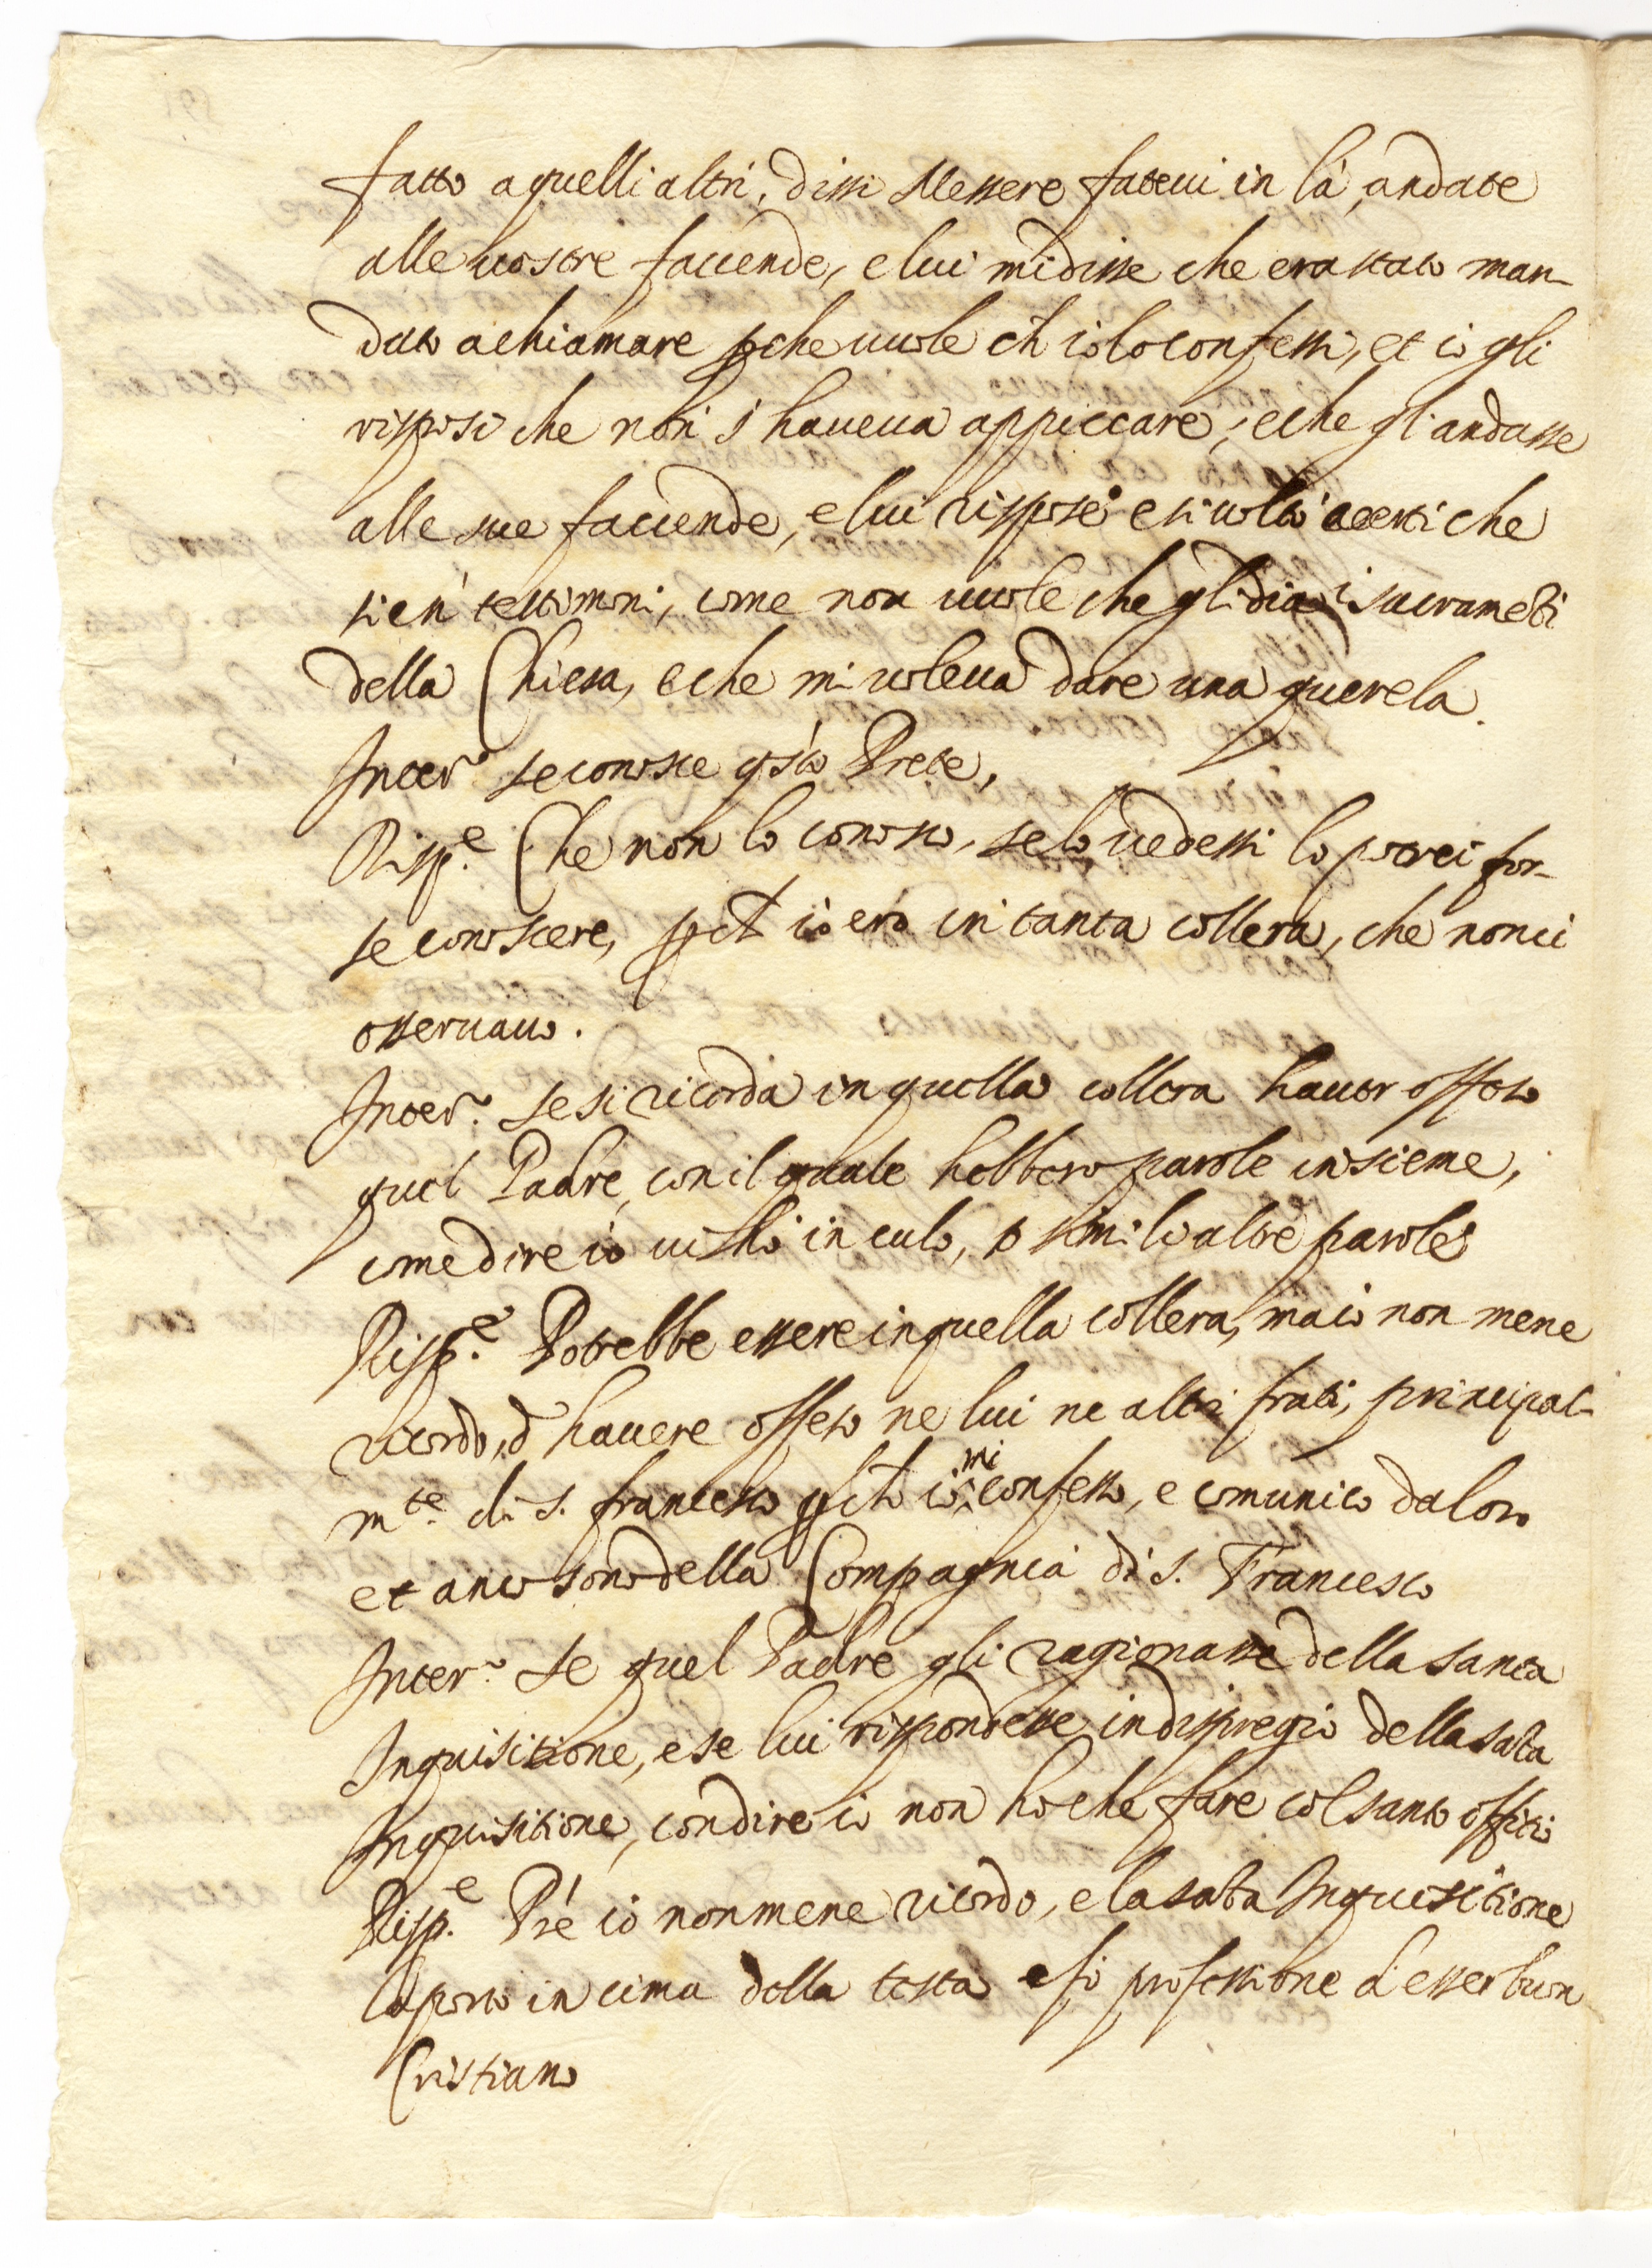 fatto a quelli altri, dissi Messere fatevi in là, andate
alle vostre facende, e lui mi disse che era stato man-
dato a chiamare pche vuole ch io lo confessi, et io gli
risposi che non s' haveva appiccare, e che gl'andasse
alle sue facende, e lui rispose e si voltò a certi che
sien testimoni, come non vuole che gli dia i sacrameti
della Chiesa, e che mi voleva dare una querela.
Inter.º se conosce qsto Prete,
Risp.e Che non lo conosco, se lo vedessi lo potrei for-
se conoscere, pch io ero in tanta collera, che non ci
osservavo.
Inter.º se si ricorda in quella collera haver offeso
quel Padre, con il quale hebbero parole insieme,
come dire io vi hò in culo, o simile altre parole
Risp.e Potrebbe essere in quella collera, ma io non me ne
ricordo, d havere offeso ne lui ne altri frati, principal-
m.te di s. francesco pch io mi confesso, e comunico da loro
et anco sono della Compagnia di s. Francesco
Inter.º se quel Padre gli ragionasse della santa
Inquisitione, e se lui rispondesse in dispregio della sata
Inquisitione, con dire io non ho che fare col santo offitio
Risp.e Pre io non me ne ricordo, e la sata Inquisitione
la porto in cima della testa e fò professione d'esser buon
Cristiano